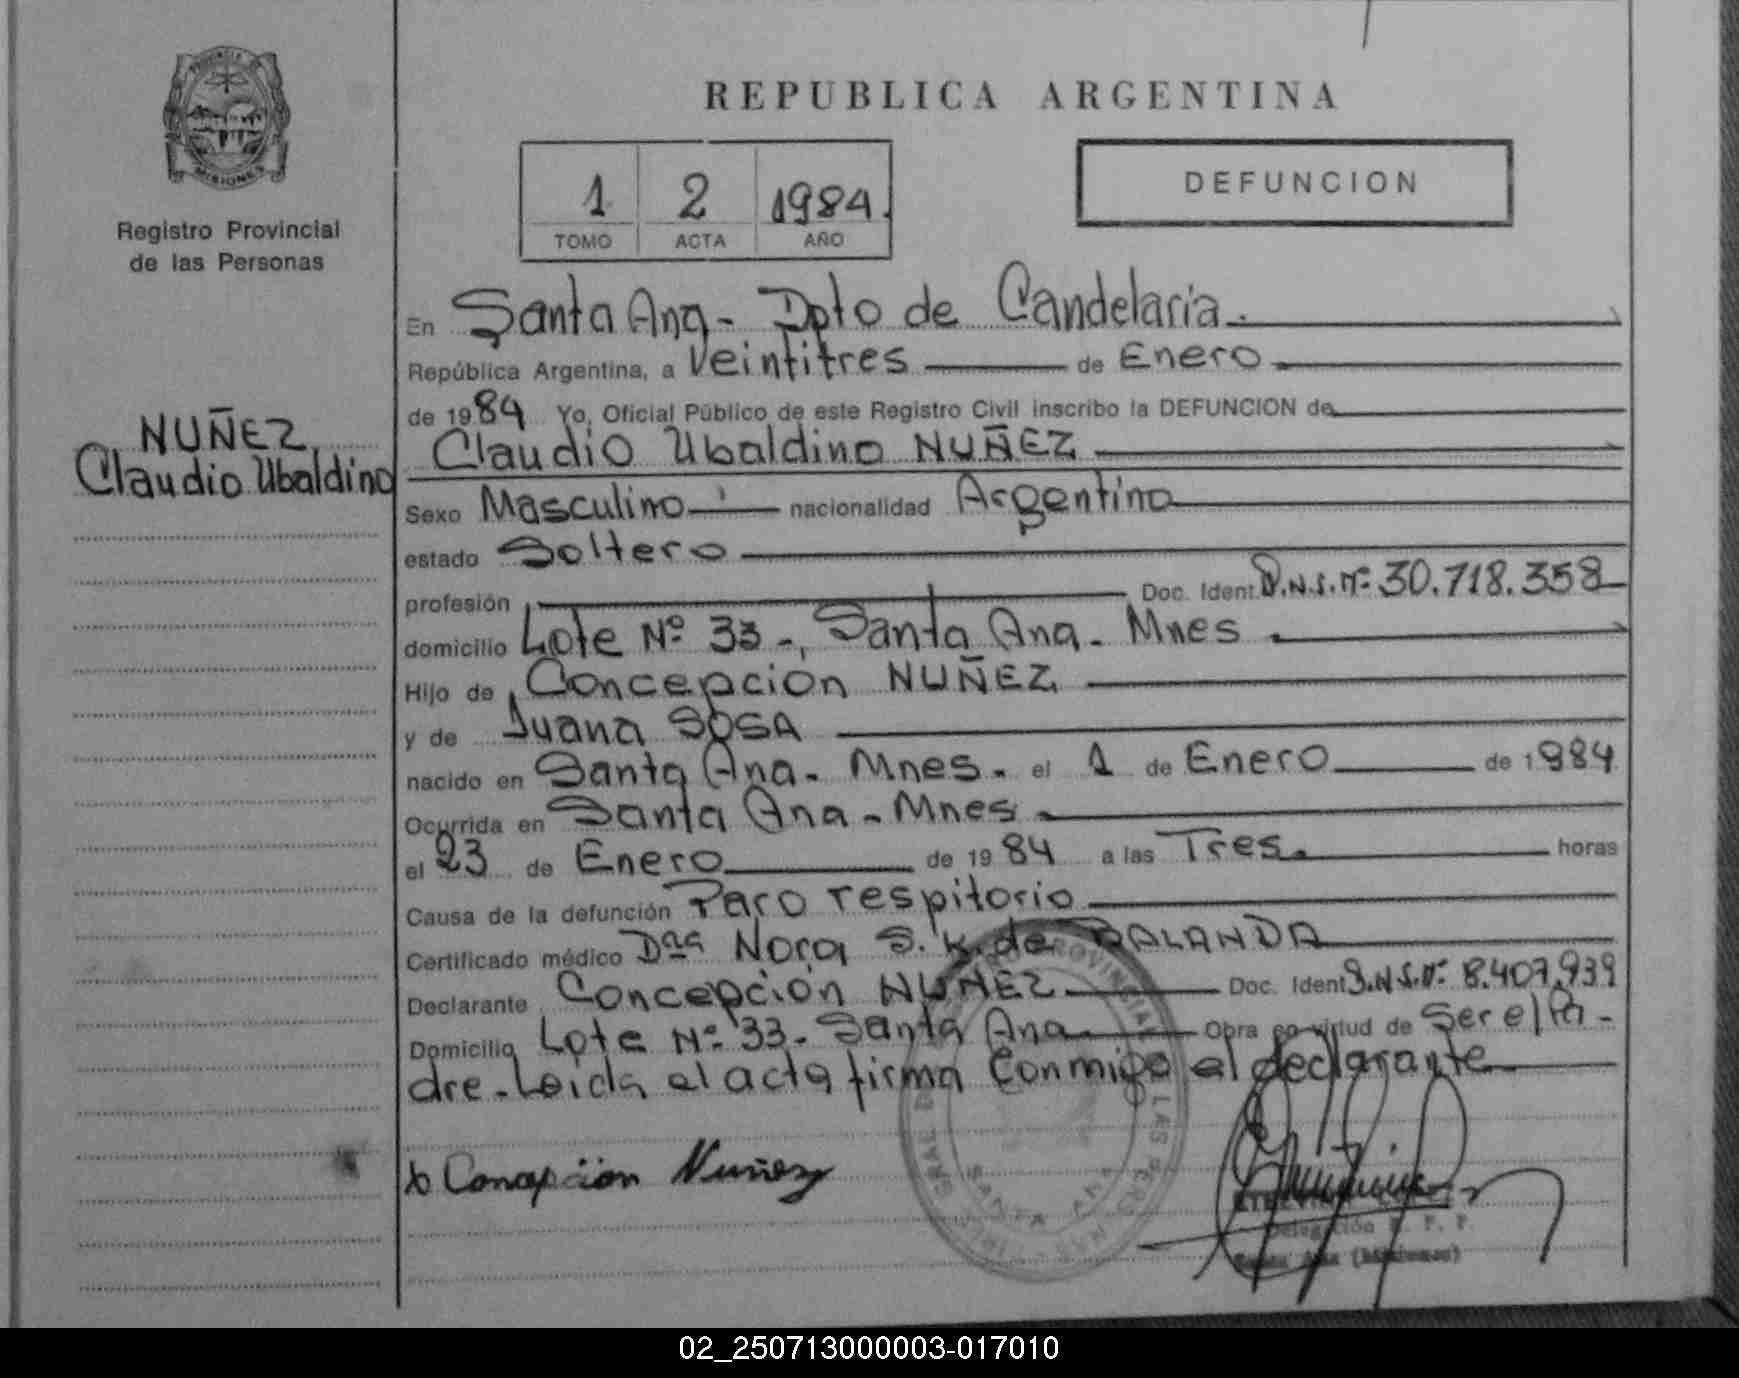 PROVINCIA DE
MISIONES
Registro Provincial
de las Personas
NUÑEZ
Claudio Ubaldino
REPUBLICA ARGENTINA
1 2 1984.
TOMO ACTA AÑO
DEFUNCION
En Santa Ana - Dpto de Candelaria.
República Argentina, a Veintitres de Enero
de 1984 Yo, Oficial Público de este Registro Civil inscribo la DEFUNCION de
Claudio Ubaldino NUÑEZ
Sexo Masculino nacionalidad Argentino
estado Soltero
profesión Doc. Ident. D.N.I. Nº 30.718.358
domicilio Lote Nº 33-, Santa Ana - Mnes
Hijo de Concepción NUÑEZ
y de Juana SOSA
nacido en Santa Ana - Mnes. el 1 de Enero de 1984
Ocurrida en Santa Ana - Mnes
el 23 de Enero de 1984 a las Tres. horas
Causa de la defunción Paro respitorio
Certificado médico Dra Nora S. K. de
Declarante Concepción NUÑEZ Doc. Ident D.N.I. Nº 8.407.939
Domicilio Lote Nº 33 - Santa Ana Obra en virtud de Ser el Pa-
dre - Leida el acta firma Conmigo el declarante
Concepción Nuñez
SANTA ANA
Delegación R. P. P.
Santa Ana (Misiones)
02_250713000003-017010